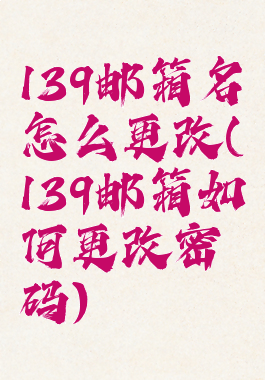 139邮箱名
怎么更改(
139邮箱如
何更改密
码)